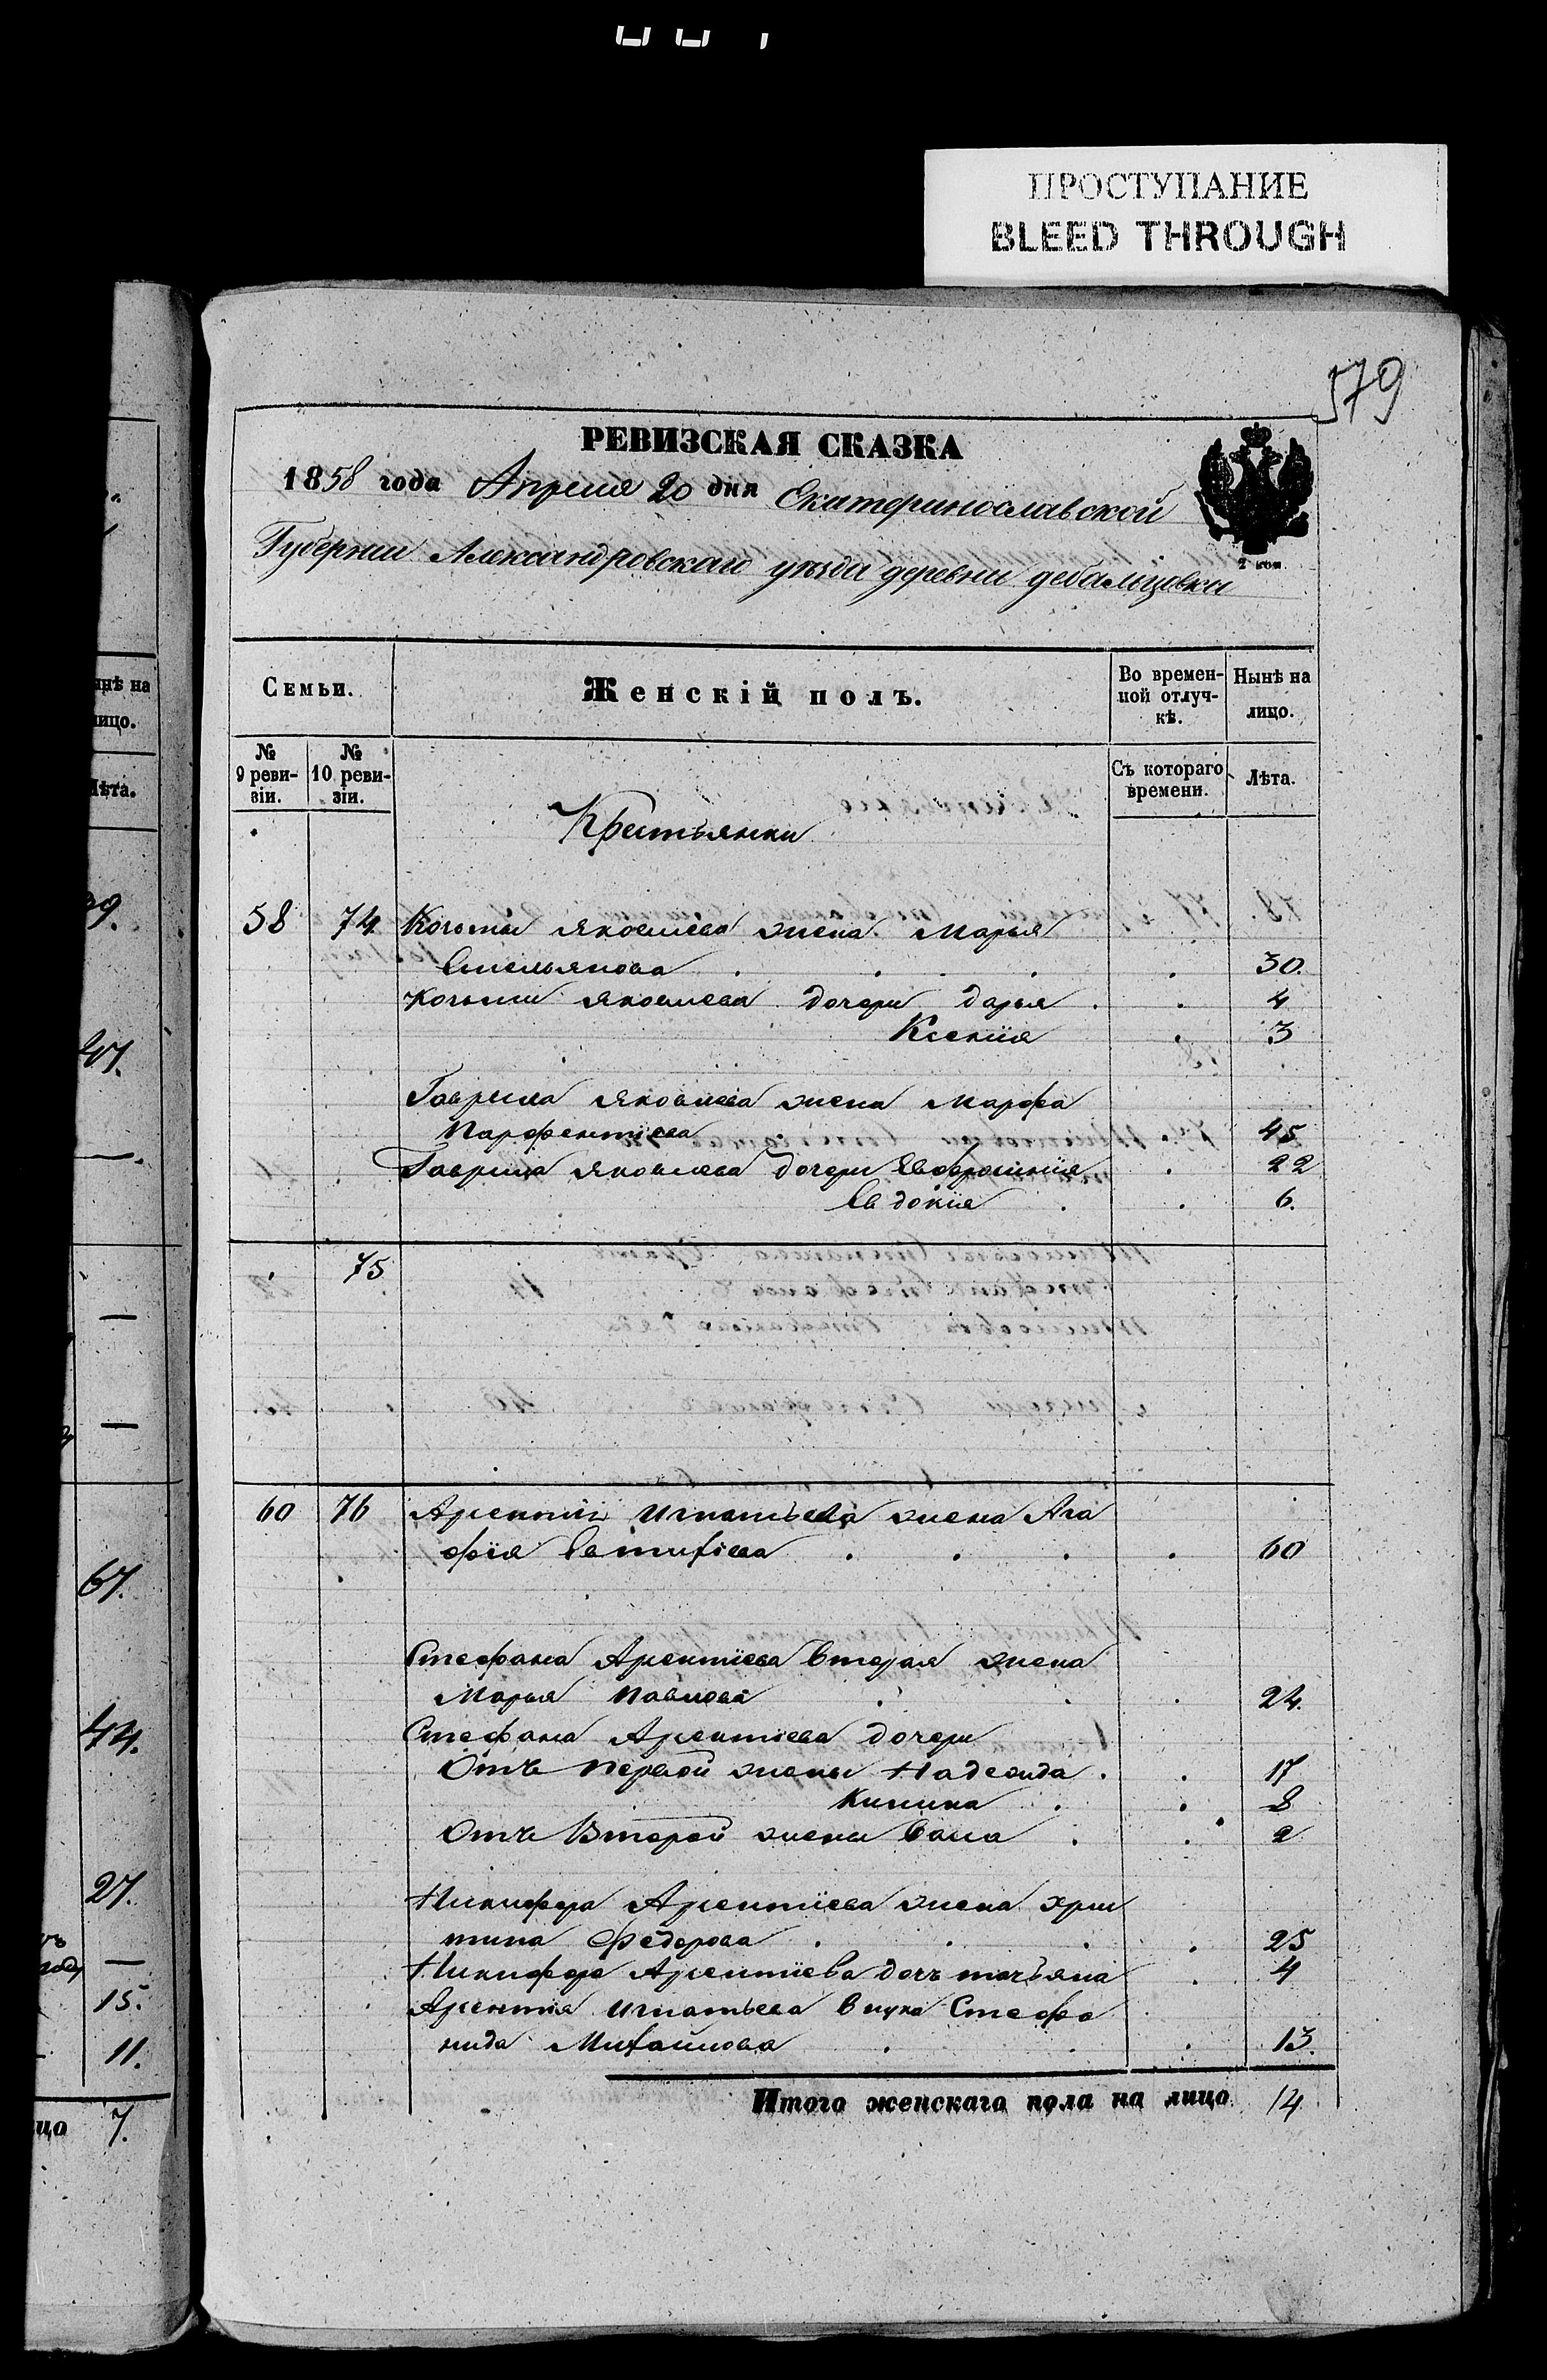 ПРОСТУПАНИЕ
BLEED THROUGH
579
РЕВИЗСКАЯ СКАЗКА
1858 года Апреля 20 дня Екатеринославской
Губернии Александровскаго уѣзда деревни дебальцовки
2 коп.
Семьи.
Женскій полъ.
Во времен-
ной отлуч-
кѣ.
Нынѣ на
лицо.
№
9 реви-
зіи.
№
10 реви-
зіи.
Съ котораго
времени.
Лѣта.
Крестьянки
58 74 Козьмы Яковлева жена Марья
Емельянова 30.
Козьмы Яковлева дочери Дарья 4
Ксенія 3
Гаврила Яковлева жена Марфа
Парфентіева 45
Гаврила Яковлева дочери Евфросинія 22
Евдокія 6.
75
60 76 Арентія Игнатьева жена Ага
фія Евтихіева 60
Стефана Арентіева вторая жена
Марья Павлова 24.
Стефана Арентіева дочери
Отъ первой жены Надежда 17
Килина 8
Отъ Второй жены 2
Никифора Арентіева жена Хрис
тина Федорова 25
Никифора Арентіева дочь татьяна 4
Арентія Игнатьева внука Стефа
нида Михайлова 13.
Итого женскаго пола на лицо 14
нынѣ на
лицо.
Лѣта.
99.
47.
67.
44.
27.
15.
11.
7.